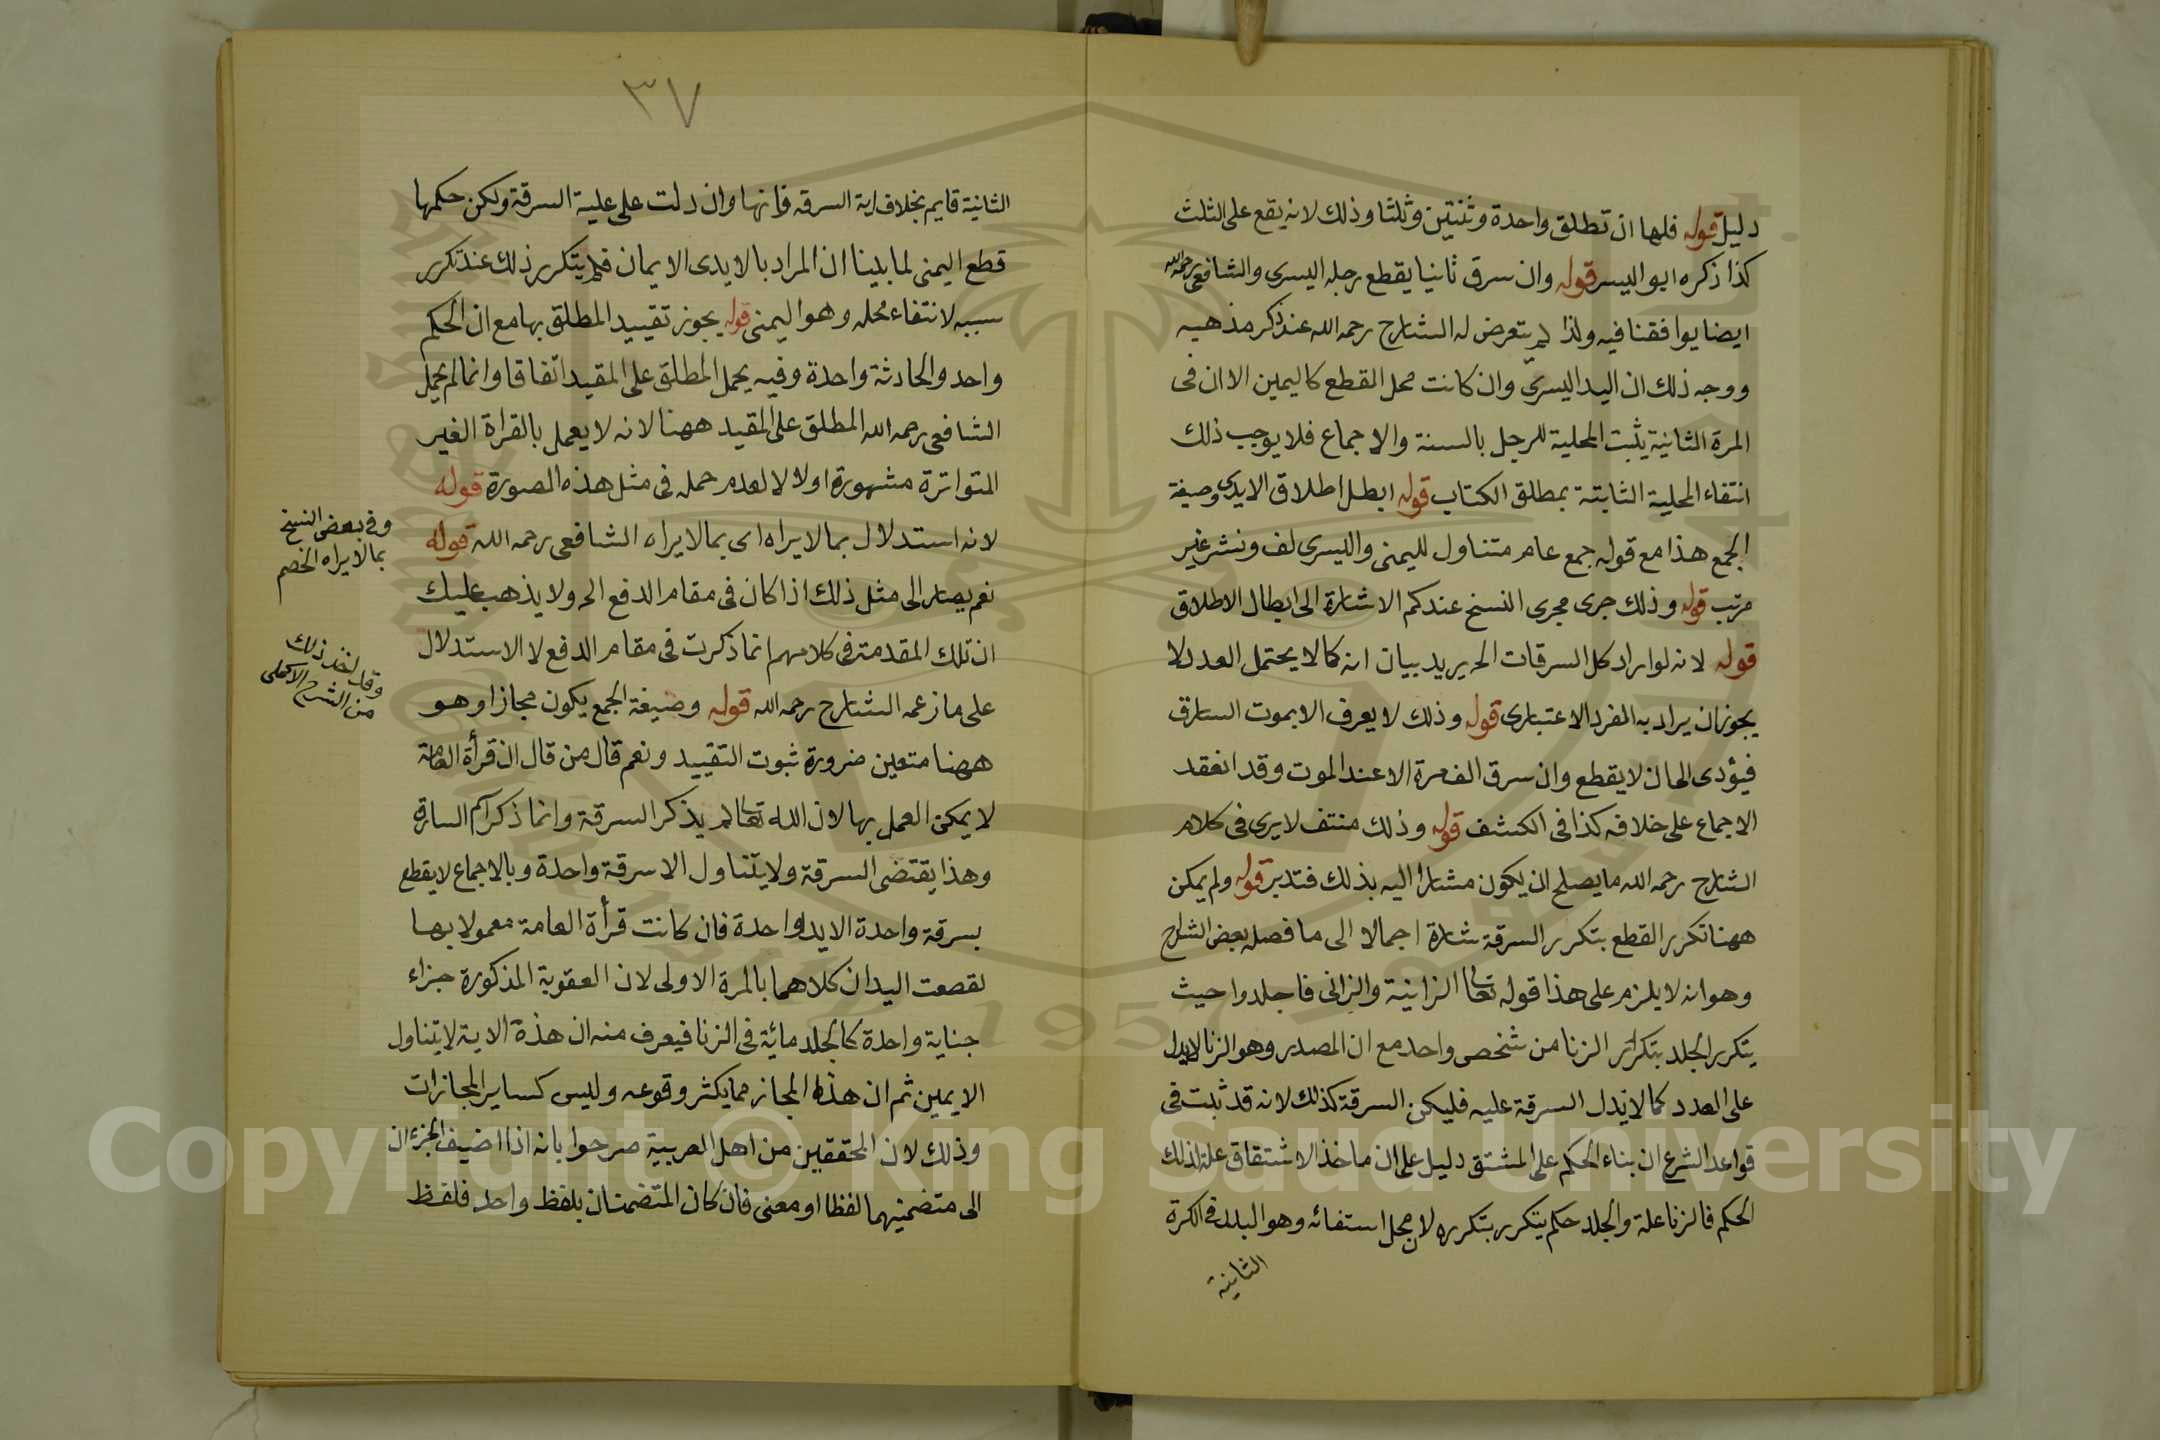 دليل قوله فلها ان تطلق واحدة وثنتين وثلثا وذلك لانه يقع على الثلث
كذا ذكره ابو اليسر قوله وان سرق ثانيا يقطع رجله اليسرى والشافعى رحمه الله
ايضا يوافقنا فيه ولذا لم يتعرض له الشارح رحمه الله عند ذكر مذهبه
ووجه ذلك ان اليد اليسرى وان كانت محل القطع كاليمين الا ان فى
المرة الثانية يثبت المحلية للرجل بالسنة والاجماع فلا يوجب ذلك
انتفاء المحلية الثابتة بمطلق الكتاب قوله ابطل اطلاق الايدى وصيغة
الجمع هذا مع قوله جمع عام متناول لليمنى واليسرى لف ونشر غير
مرتب قوله وذلك جرى مجرى النسخ عندكم الاشارة الى ابطال الاطلاق
قوله لانه لو اراد كل السرقات الخ يريد بيان انه كما لا يحتمل العدد لا
يجوز ان يراد به المفرد الاعتبارى قوله وذلك لا يعرف الا بموت السارق
فيؤدى الى ان لا يقطع وان سرق الف مرة الا عند الموت وقد انعقد
الاجماع على خلافه كذا فى الكشف قوله وذلك منتف لا يرى فى كلام
الشارح رحمه الله ما يصلح ان يكون مشارا اليه بذلك فتدبر قوله ولم يمكن
ههنا تكرر القطع بتكرر السرقة شارة اجمالا الى ما فصله بعض الشارح
وهو انه لا يلزم على هذا قوله تعالى الزانية والزانى فاجلدوا حيث
يتكرر الجلد بتكرر الزنا من شخص واحد مع ان المصدر وهو الزنا لا يدل
على العدد كما لا يدل السرقة عليه فليكن السرقة كذلك لانه قد ثبت فى
قواعد الشرع ان بناء الحكم على المشتق دليل على ان ماخذ الاشتقاق علة لذلك
الحكم فالزنا علة والجلد حكم يتكرر بتكرره لان محل استفائه وهو البدن فى الكرة
الثانية
٣٧
الثانية قايم بخلاف اية السرقه فانها وان دلت على علية السرقة ولكن حكمها
قطع اليمنى لما بينا ان المراد بالايدى الايمان فلم يتكرر ذلك عند تكرر
سببه لانتفاء محله وهو اليمنى قوله يجوز تقييد المطلق بها مع ان الحكم
واحد والحادثة واحدة وفيه يحمل المطلق على المقيد اتفاقا وانما لم يحمل
الشافعى رحمه الله المطلق على المقيد ههنا لانه لا يعمل بالقراة الغير
المتواترة مشهورة اولا لا لعدم حمله فى مثل هذه الصورة قوله
لانه استدلال بما لا يراه اى بما لا يراه الشافعى رحمه الله قوله
وفى بعض النسخ
بما لا يراه الخصم
نعم يصار الى مثل ذلك اذا كان فى مقام الدفع الخ ولا يذهب عليك
ان تلك المقدمة فى كلامهم انما ذكرت فى مقام الدفع لا الاستدلال
وقد اخذ ذلك
من الشرح الاكملى
على ما زعمه الشارح رحمه الله قوله وصيغة الجمع يكون مجازا وهو
ههنا متعين ضرورة ثبوت التقييد ونعم قال من قال ان قرأة العامة
لا يمكن العمل بها لان الله تعالى لم يذكر السرقة وانما ذكر اسم السارق
وهذا يقتضى السرقة ولا يتناول الا سرقة واحدة وبالاجماع لا يقطع
بسرقة واحدة الا يد واحدة فان كانت قرأة العامة معمولا بها
لقصعت اليدان كلاهما بالمرة الاولى لان العقوبة المذكورة جزاء
جناية واحدة كالجلد مائة فى الزنا فيعرف منه ان هذه الاية لا يتناول
الا يمين ثم ان هذا المجاز مما يكثر وقوعه وليس كساير المجازات
وذلك لان المحققين من اهل العربية صرحوا بانه اذا اضيف الجزءان
الى متضمنيهما لفظا او معنى فان كان المتضمنان بلفظ واحد فلفظ
Copyright © King Saud University
1957